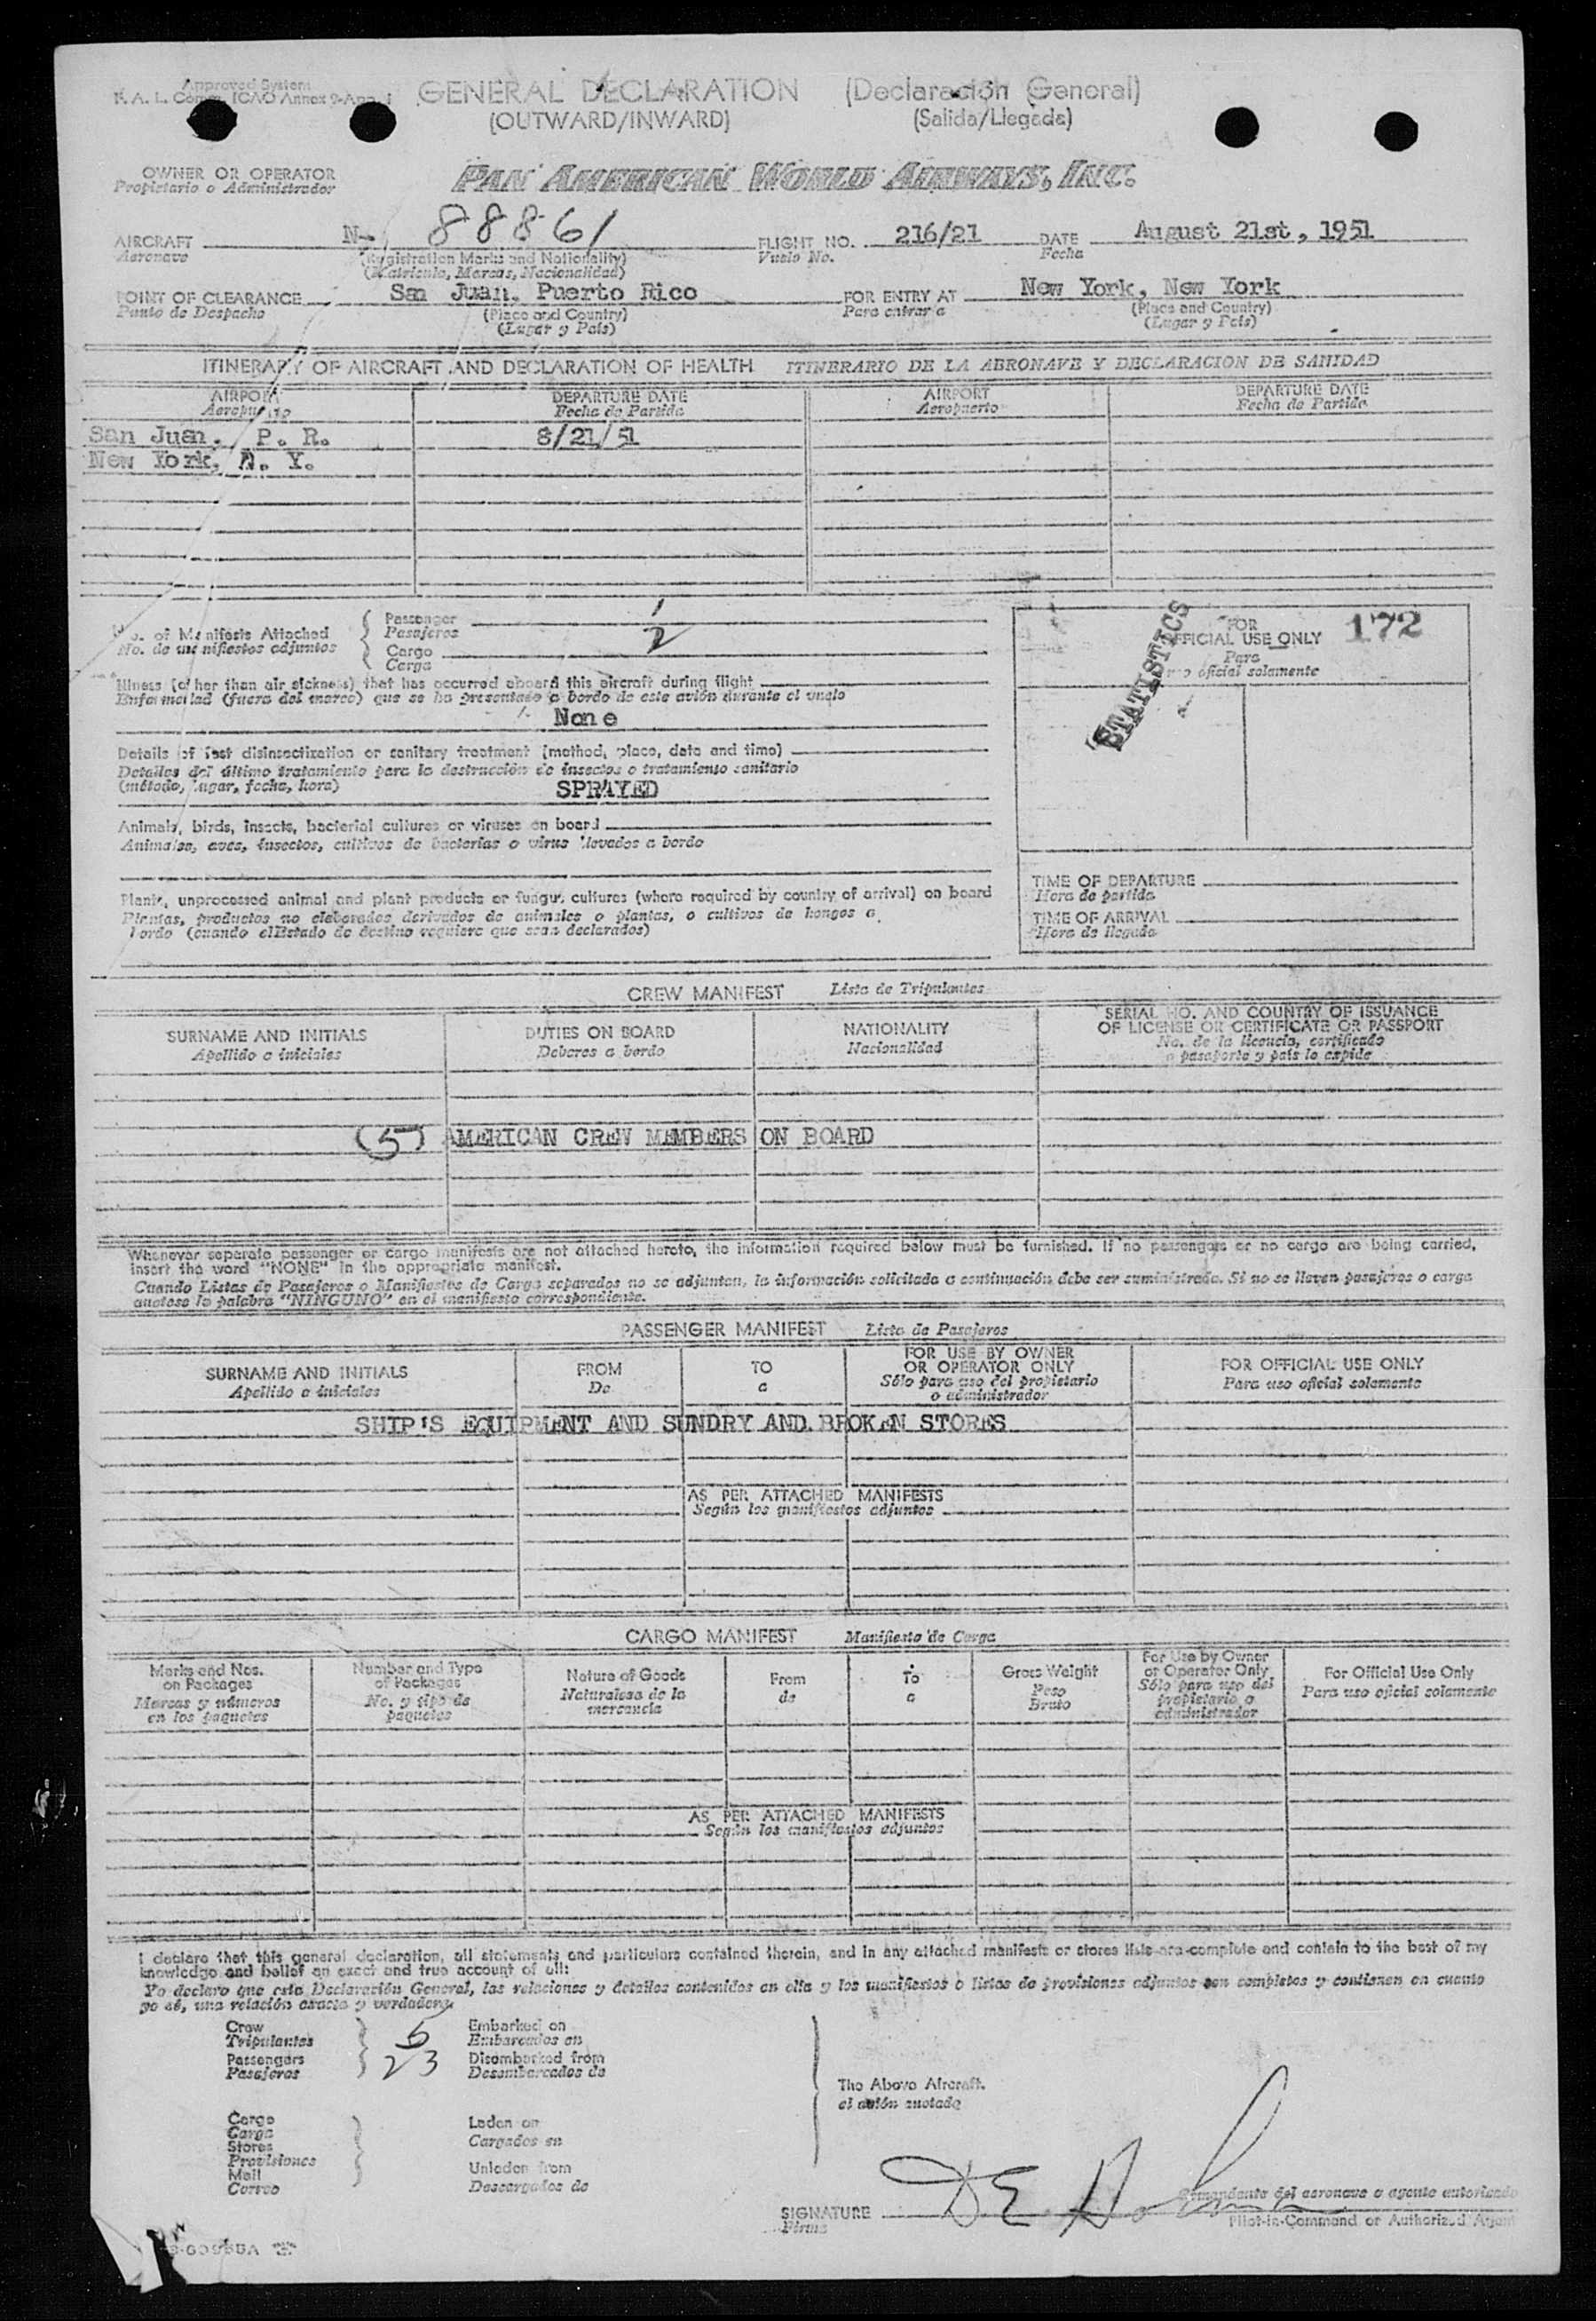 Approved System
F. A. L. Comm. ICAO Annex 9-App. 1
GENERAL DECLARATION (Declaración General)
(OUTWARD/INWARD) (Salida/Llegada)
OWNER OR OPERATOR
Propietario o Administrador
PAN AMERICAN WORLD AIRWAYS, INC.
AIRCRAFT N- 88861 FLIGHT NO. 216/21 DATE August 21st, 1951
Aeronave (Registration Marks and Nationality) Vuelo No. Fecha
(Matricula, Marcas, Nacionalidad)
POINT OF CLEARANCE San Juan, Puerto Rico FOR ENTRY AT New York, New York
Punto de Despacho (Place and Country) Para entrar a (Place and Country)
(Lugar y País) (Lugar y País)
ITINERARY OF AIRCRAFT AND DECLARATION OF HEALTH ITINERARIO DE LA AERONAVE Y DECLARACION DE SANIDAD
AIRPORT DEPARTURE DATE AIRPORT DEPARTURE DATE
Aeropuerto Fecha de Partida Aeropuerto Fecha de Partida
San Juan, P. R. 8/21/51
New York, N. Y.
No. of Manifests Attached
No. de manifiestos adjuntos
Passenger 1
Pasajeros
Cargo 2
Carga
FOR 172
OFFICIAL USE ONLY
Para
uso oficial solamente
STATISTICS
Illness (other than air sickness) that has occurred aboard this aircraft during flight
Enfermedad (fuera del mareo) que se ha presentado a bordo de este avión durante el vuelo
None
Details of last disinsectization or sanitary treatment (method, place, date and time)
Detalles del último tratamiento para la destrucción de insectos o tratamiento sanitario
(método, lugar, fecha, hora)
SPRAYED
Animals, birds, insects, bacterial cultures or viruses on board
Animales, aves, insectos, cultivos de bacterias o virus llevados a bordo
Plants, unprocessed animal and plant products or fungus cultures (where required by country of arrival) on board
Plantas, productos no elaborados derivados de animales o plantas, o cultivos de hongos a
bordo (cuando el Estado de destino requiere que sean declarados)
TIME OF DEPARTURE
Hora de partida
TIME OF ARRIVAL
Hora de llegada
CREW MANIFEST Lista de Tripulantes
SURNAME AND INITIALS DUTIES ON BOARD NATIONALITY SERIAL NO. AND COUNTRY OF ISSUANCE
OF LICENSE OR CERTIFICATE OR PASSPORT
Apellido e iniciales Deberes a bordo Nacionalidad No. de la licencia, certificado
o pasaporte y país lo expide
(5) AMERICAN CREW MEMBERS ON BOARD
Whenever separate passenger or cargo manifests are not attached hereto, the information required below must be furnished. If no passengers or no cargo are being carried,
insert the word "NONE" in the appropriate manifest.
Cuando Listas de Pasajeros o Manifiestos de Carga separados no se adjuntan, la información solicitada a continuación debe ser suministrada. Si no se llevan pasajeros o carga
anotese la palabra "NINGUNO" en el manifiesto correspondiente.
PASSENGER MANIFEST Lista de Pasajeros
SURNAME AND INITIALS FROM TO FOR USE BY OWNER
OR OPERATOR ONLY FOR OFFICIAL USE ONLY
Apellido e iniciales De a Sólo para uso del propietario
o administrador Para uso oficial solamente
SHIP'S EQUIPMENT AND SUNDRY AND BROKEN STORES
AS PER ATTACHED MANIFESTS
Según los manifiestos adjuntos
CARGO MANIFEST Manifiesto de Carga
Marks and Nos.
on Packages
Marcas y números
en los paquetes
Number and Type
of Packages
No. y tipo de
paquetes
Nature of Goods
Naturalesa de la
mercancia
From
de
To
a
Gross Weight
Peso
Bruto
For Use by Owner
or Operator Only
Sólo para uso del
propietario o
administrador
For Official Use Only
Para uso oficial solamente
AS PER ATTACHED MANIFESTS
Según los manifiestos adjuntos
I declare that this general declaration, all statements and particulars contained therein, and in any attached manifests or stores lists are complete and contain to the best of my
knowledge and belief an exact and true account of all:
Yo declaro que esta Declaración General, las relaciones y detalles contenidos en ella y los manifiestos o listas de provisiones adjuntos son completos y contienen en cuanto
yo sé, una relación exacta y verdadera.
Crew 5 Embarked on
Tripulantes Embarcados en
Passengers 23 Disembarked from
Pasajeros Desembarcados de
The Above Aircraft.
el avión anotado
Cargo
Carga
Stores
Provisiones
Mail
Correo
Laden on
Cargados en
Unladen from
Descargados de
SIGNATURE
Firma
Comandante del aeronave o agente autorizado
Pilot-in-Command or Authorized Agent